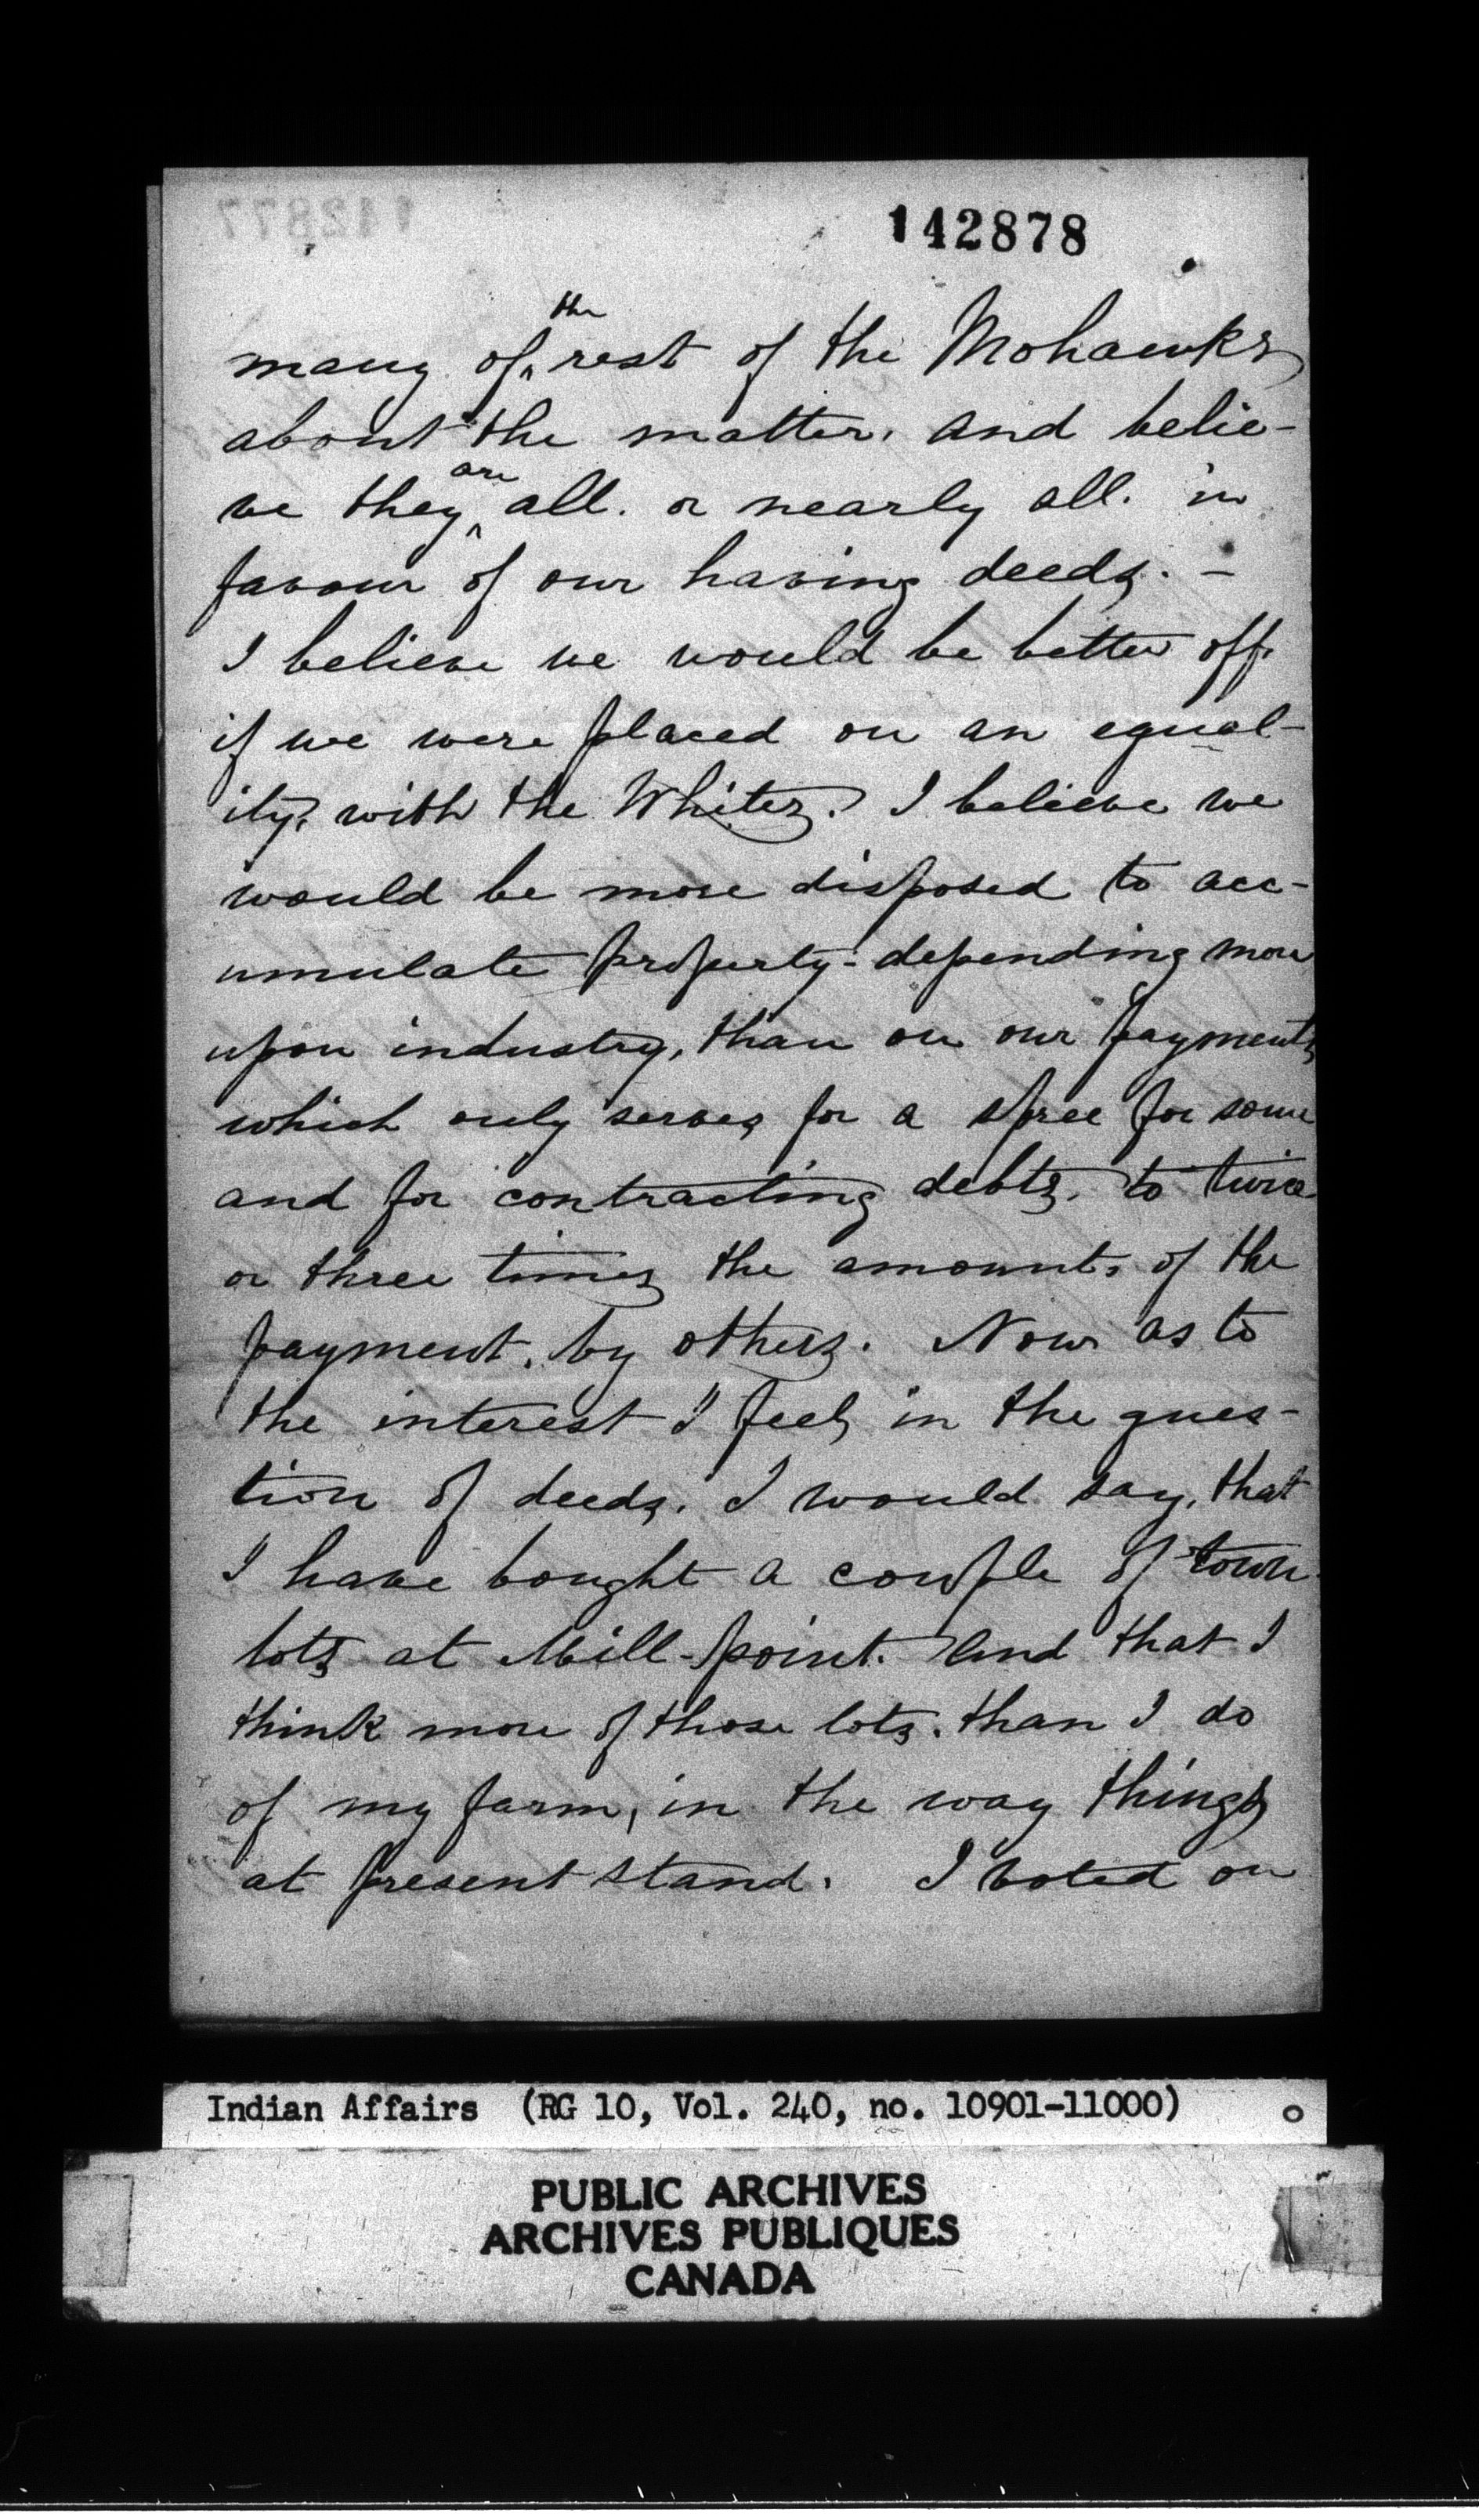 142878
many of the rest of the Mohawks
about the matter. and belie-
ve they are all. or nearly all. in
favour of our having deeds. -
I believe we would be better off.
if we were placed on an equal-
ity, with the Whites. I believe we
would be more disposed to acc-
umulate property - depending more
upon industry, than on our payments
which only serves for a spree for some
and for contracting debts, to twice
or three times the amounts of the
payment, by others. Now as to
the interest I feel in the ques-
tion of deeds. I would say, that
I have bought a couple of town
lots at Mill-point. And that I
think more of those lots. than I do
of my farm, in the way things
at present stand. I voted on
Indian Affairs (RG 10, Vol. 240, no. 10901-11000)
PUBLIC ARCHIVES
ARCHIVES PUBLIQUES
CANADA